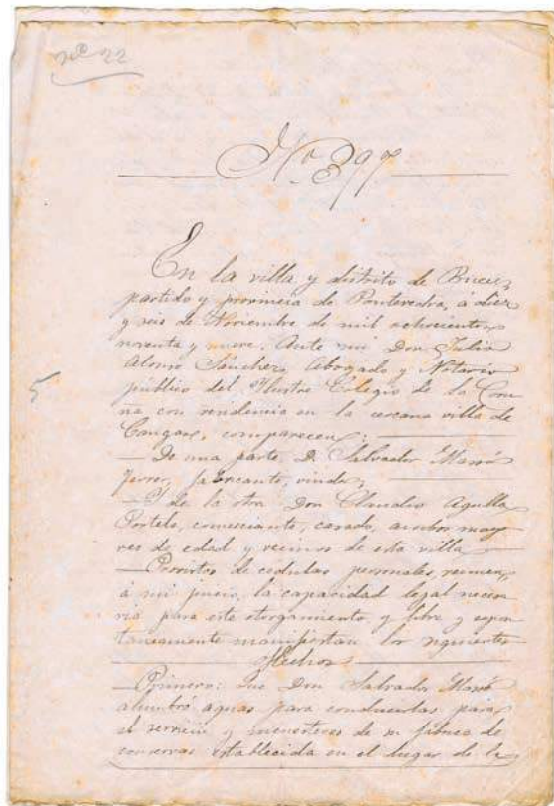 nº 22
No. 397
En la villa y distrito de Bueu,
partido y provincia de Pontevedra, á diez
y seis de Noviembre de mil ochocientos
noventa y nueve. Ante mi Don Julio
Alonso Sánchez, Abogado y Notario
público del Ilustre Colegio de la Coru
ña con residencia en la cercana villa de
Cangas, comparecen:
— De una parte D. Salvador Massó
Ferrer, fabricante, viudo,
— Y de la otra Don Claudio
Portela, comerciante, casado, ambos mayo
res de edad y vecinos de esta villa
— Provistos de cedulas personales, reunen,
á mi juicio, la capacidad legal necesa
ria para este otorgamiento, y libre y espon
taneamente manifiestan los siguientes
Hechos
— Primero: Que Don Salvador Massó
alumbró aguas para conducirlas para
el servicio y menesteres de su fábrica de
conservas establecida en el lugar de la